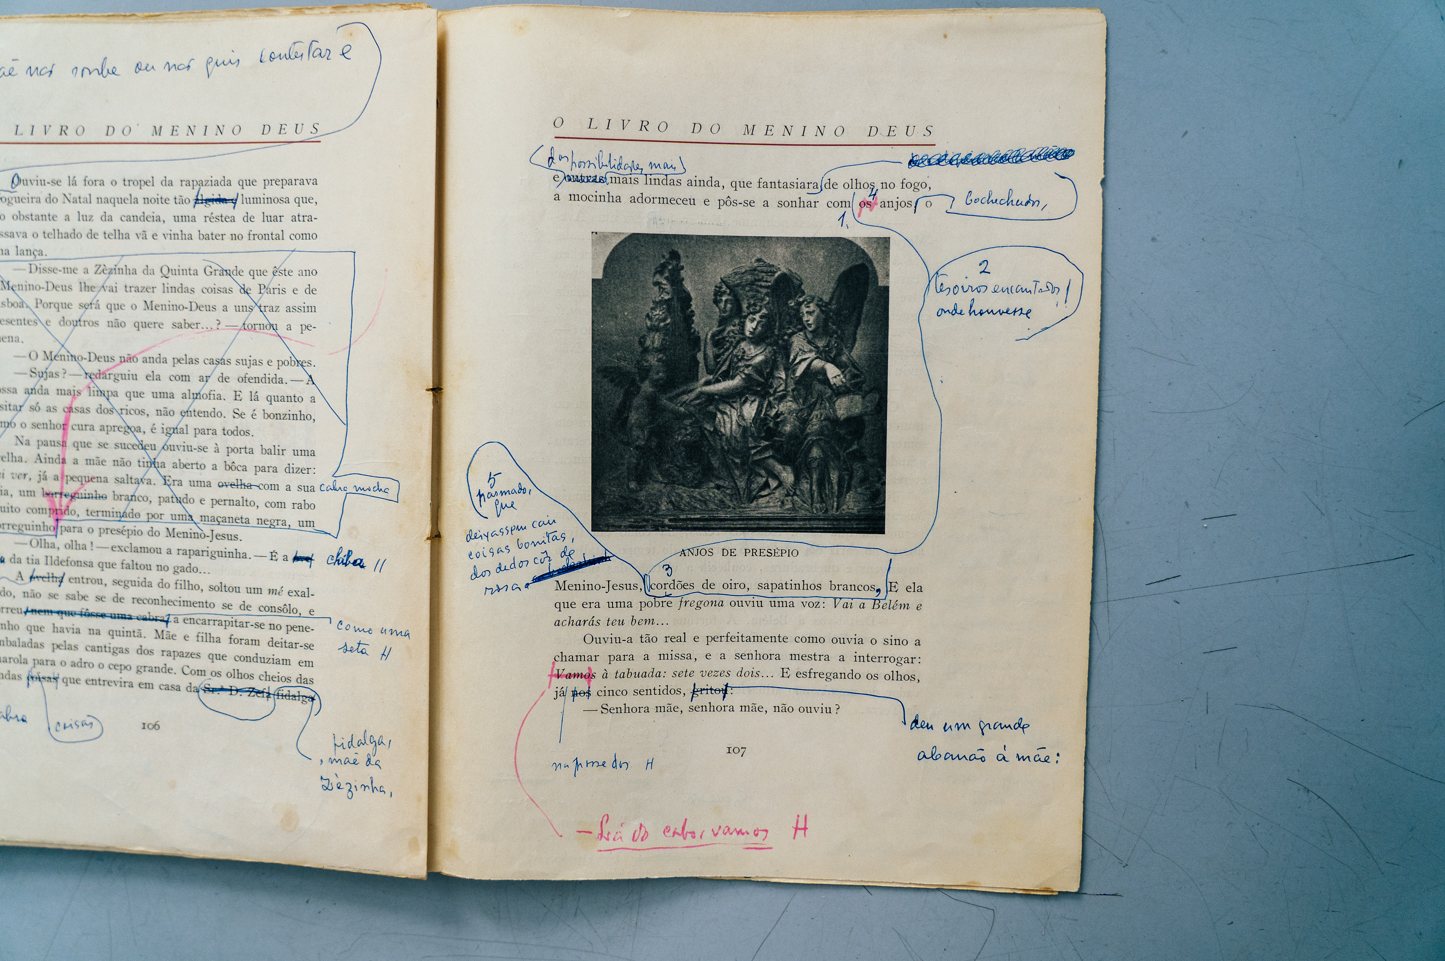 não sonhe ou nos quis contestar e
LIVRO DO MENINO DEUS
Ouviu-se lá fora o tropel da rapaziada que preparava
ogueira do Natal naquela noite tão álgida e luminosa que,
o obstante a luz da candeia, uma réstea de luar atra-
ssava o telhado de telha vã e vinha bater no frontal como
na lança.
—Disse-me a Zèzinha da Quinta Grande que êste ano
Menino-Deus lhe vai trazer lindas coisas de Paris e de
sboa. Porque será que o Menino-Deus a uns traz assim
esentes e doutros não quere saber...? — tornou a pe-
ena.
—O Menino-Deus não anda pelas casas sujas e pobres.
—Sujas? — redarguiu ela com ar de ofendida. — A
ossa anda mais limpa que uma almofia. E lá quanto a
sitar só as casas dos ricos, não entendo. Se é bonzinho,
mo o senhor cura apregoa, é igual para todos.
Na pausa que se sucedeu ouviu-se à porta balir uma
elha. Ainda a mãe não tinha aberto a bôca para dizer:
i ver, já a pequena saltava. Era uma ovelha com a sua
cabra mocha
ia, um borreguinho branco, patudo e pernalto, com rabo
uito comprido, terminado por uma maçaneta negra, um
orreguinho para o presépio do Menino-Jesus.
—Olha, olha! — exclamou a rapariguinha. — É a
chiba //
da tia Ildefonsa que faltou no gado...
A ovelha entrou, seguida do filho, soltou um mé exal-
do, não se sabe se de reconhecimento se de consôlo, e
rreu, nem que fôsse uma cabra, a encarrapitar-se no pene-
como uma
seta H
nho que havia na quintã. Mãe e filha foram deitar-se
mbaladas pelas cantigas dos rapazes que conduziam em
arola para o adro o cepo grande. Com os olhos cheios das
ndas coisas que entrevira em casa da Sr.ª D. Zefa fidalga
coisas
fidalga,
, mãe da
Zèzinha,
106
O LIVRO DO MENINO DEUS
das possibilidades mais
e outras mais lindas ainda, que fantasiara de olhos no fogo,
a mocinha adormeceu e pôs-se a sonhar com os anjos, o
4
bochechudos,
1.
2
tesoiros encantados!
onde houvesse
5
pasmado,
que
deixassem cair
coisas bonitas,
dos dedos côr de
rosa.
ANJOS DE PRESÉPIO
3
Menino-Jesus, cordões de oiro, sapatinhos brancos, E ela
que era uma pobre fregona ouviu uma voz: Vai a Belém e
acharás teu bem...
Ouviu-a tão real e perfeitamente como ouvia o sino a
chamar para a missa, e a senhora mestra a interrogar:
Vamos à tabuada: sete vezes dois... E esfregando os olhos,
já nos cinco sentidos, gritou:
—Senhora mãe, senhora mãe, não ouviu?
deu um grande
abanão à mãe:
107
na posse dos H
vamos H